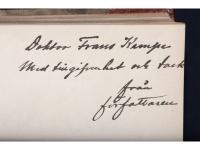 Doktor Frans Kempe
Med tillgifvenhet och tack
från
författaren